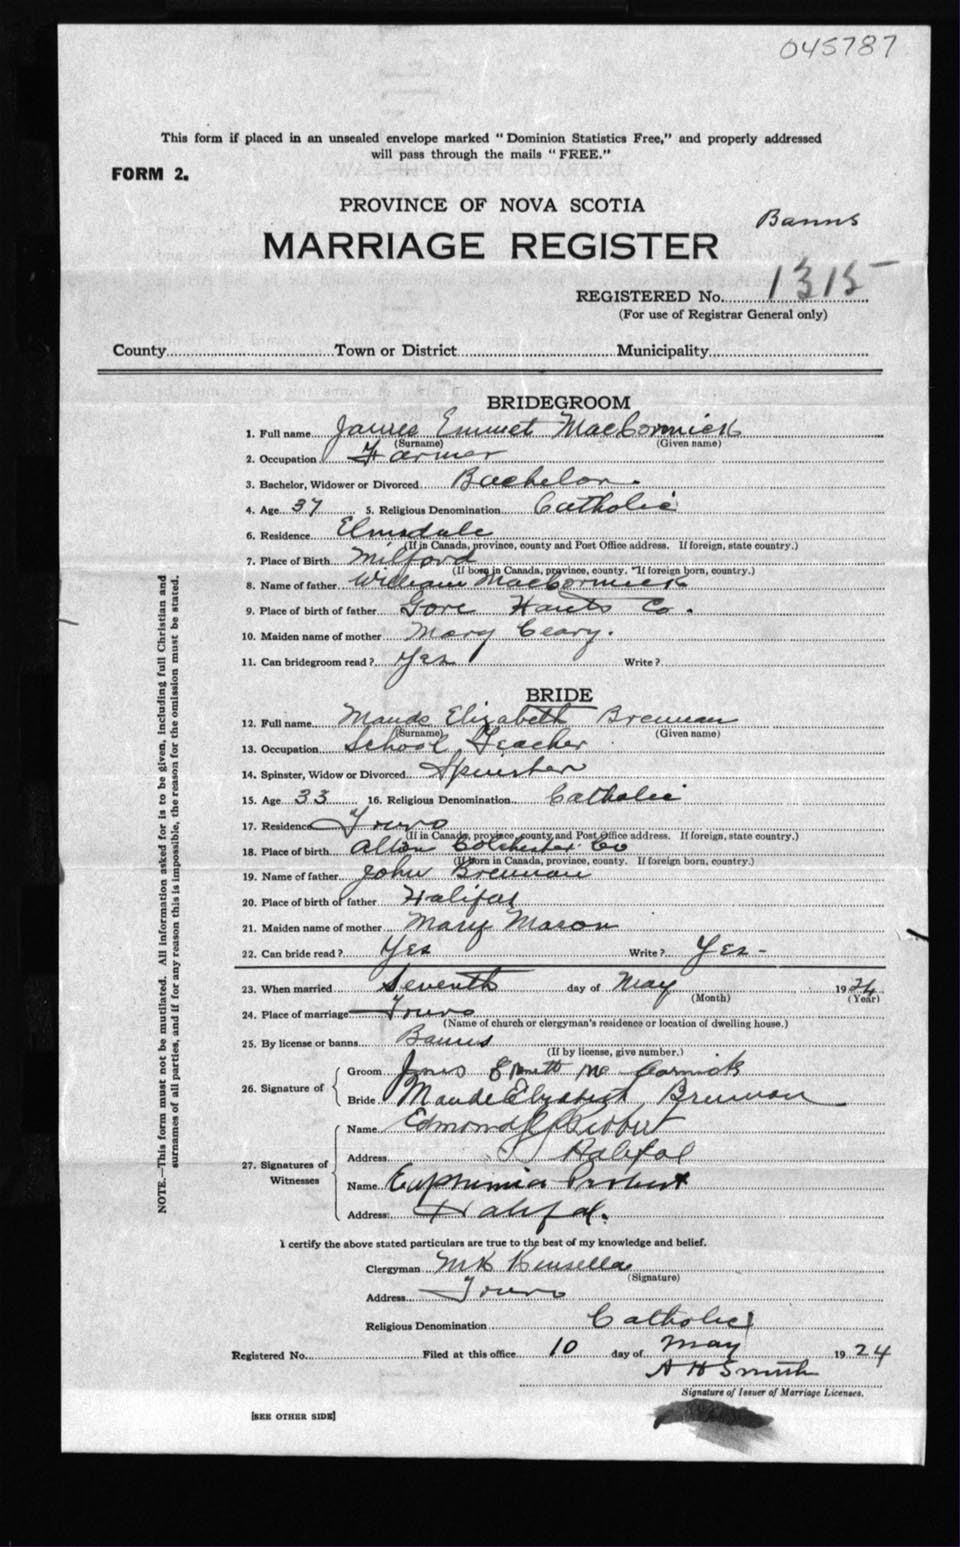 045787
This form if placed in an unsealed envelope marked "Dominion Statistics Free," and properly addressed
will pass through the mails "FREE."
FORM 2.
PROVINCE OF NOVA SCOTIA
Banns
MARRIAGE REGISTER
REGISTERED No. 1315
(For use of Registrar General only)
County Town or District Municipality
BRIDEGROOM
1. Full name James Emmet MacCormick
(Surname) (Given name)
2. Occupation Farmer
3. Bachelor, Widower or Divorced Bachelor.
4. Age 37 5. Religious Denomination Catholic
6. Residence Elmsdale
(If in Canada, province, county and Post Office address. If foreign, state country.)
7. Place of Birth Milford
(If born in Canada, province, county. If foreign born, country.)
8. Name of father William MacCormick
9. Place of birth of father Gore Hants Co.
10. Maiden name of mother Mary Ceary.
11. Can bridegroom read? Yes Write?
BRIDE
12. Full name Maude Elizabeth Brennan
(Surname) (Given name)
13. Occupation School Teacher
14. Spinster, Widow or Divorced Spinster
15. Age 33 16. Religious Denomination Catholic
17. Residence Truro
(If in Canada, province, county and Post Office address. If foreign, state country.)
18. Place of birth Alton Colchester Co
(If born in Canada, province, county. If foreign born, country.)
19. Name of father John Brennan
20. Place of birth of father Halifax
21. Maiden name of mother Mary Mason
22. Can bride read? Yes Write? Yes-
23. When married Seventh day of May 1924
(Month) (Year)
24. Place of marriage Truro
(Name of church or clergyman's residence or location of dwelling house.)
25. By license or banns Banns
(If by license, give number.)
26. Signature of
Groom James Emmett McCormick
Bride Maude Elizabeth Brennan
27. Signatures of Witnesses
Name Edmond Probert
Address Halifax
Name Euphemia Probert
Address Halifax.
I certify the above stated particulars are true to the best of my knowledge and belief.
Clergyman MK Kinsella
(Signature)
Address Truro
Religious Denomination Catholic
Registered No. Filed at this office 10 day of May 1924
A H Smith
Signature of Issuer of Marriage Licenses.
[SEE OTHER SIDE]
NOTE.—This form must not be mutilated. All information asked for is to be given, including full Christian and
surnames of all parties, and if for any reason this is impossible, the reason for the omission must be stated.